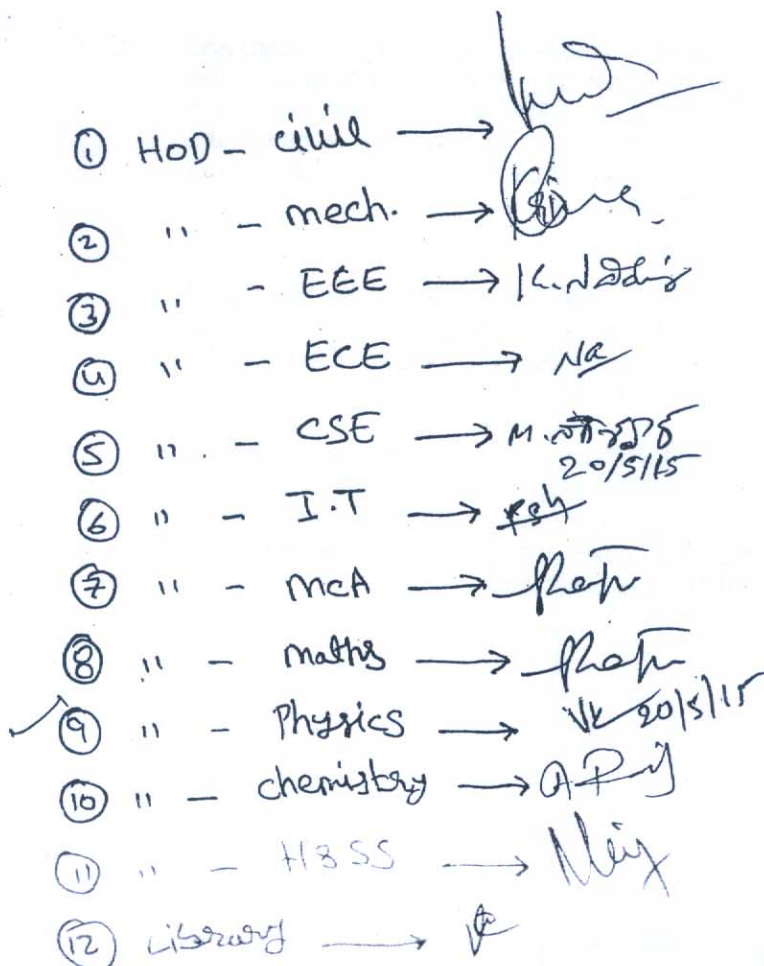 ① HoD - civil →
② " - mech. →
③ " - EEE → K.
④ " - ECE →
⑤ " - CSE → M.
20/5/15
⑥ " - I.T →
⑦ " - MCA →
⑧ " - maths →
⑨ " - Physics → 20/5/15
⑩ " - chemistry →
⑪ " - H&SS →
⑫ Library →